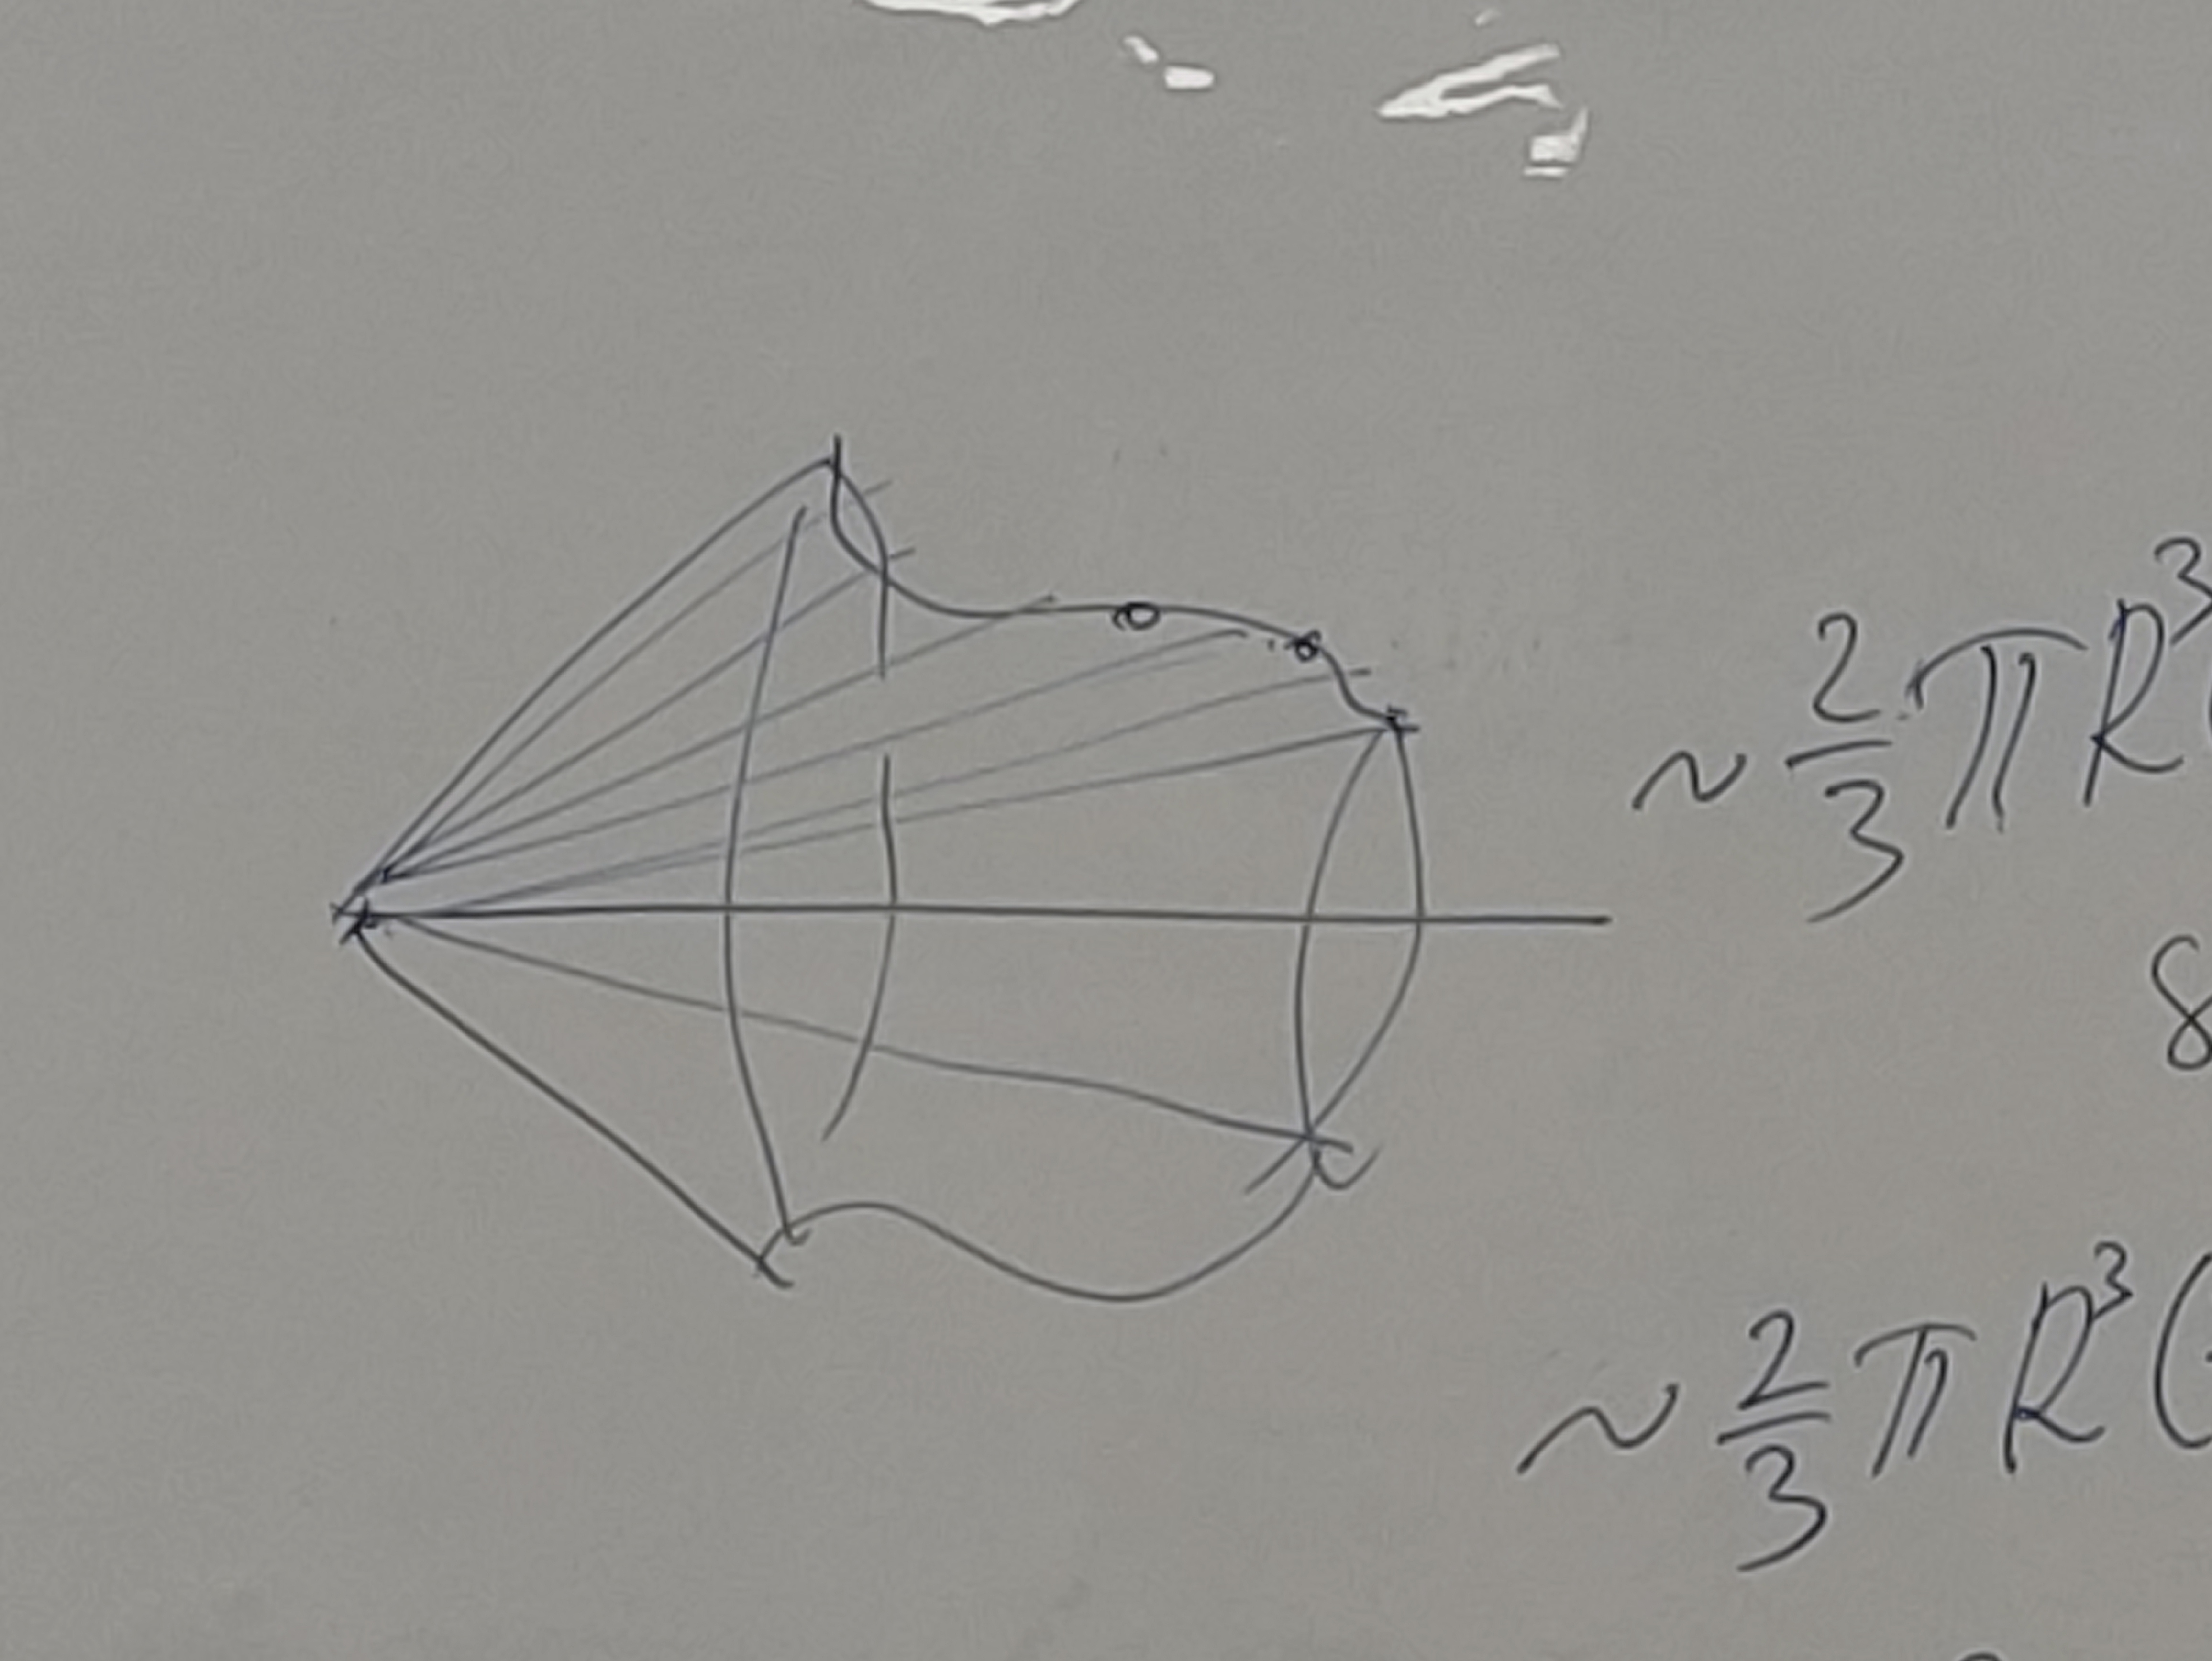 ~ 2/3 π R³
8
~ 2/3 π R³ (